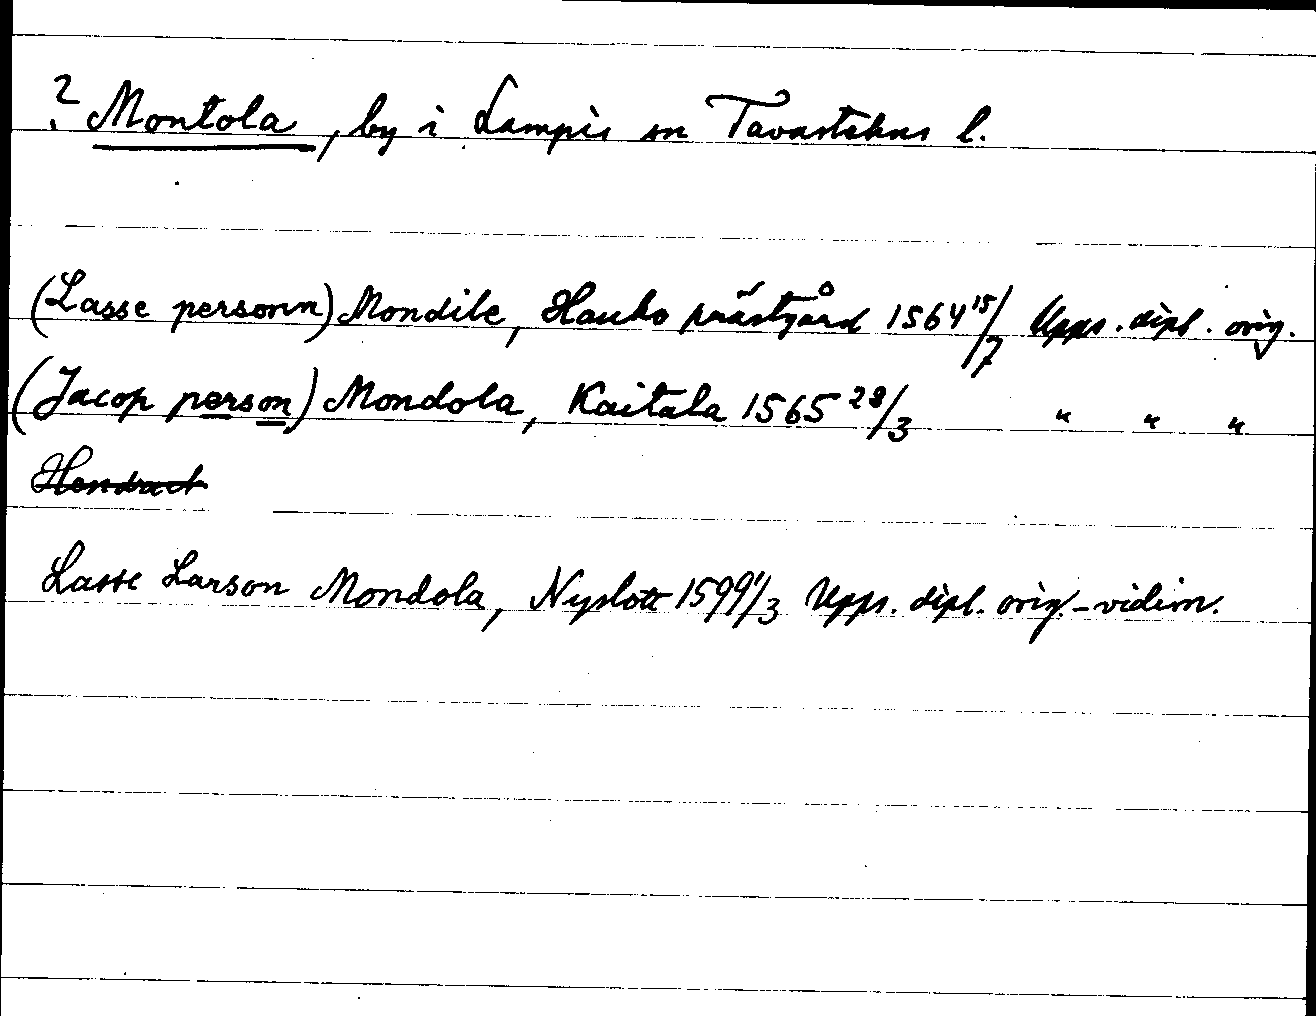 ? Montola, by i Lampis sn Tavastehus l.
(Lasse personn) Mondile, Hauho prästgård 1564 15/7 Upps. dipl. orig.
(Jacop person) Mondola, Kaitala 1565 28/3 " " "
Lasse Larson Mondola, Nyslott 1599 1/3 Upps. dipl. orig.-vidim.